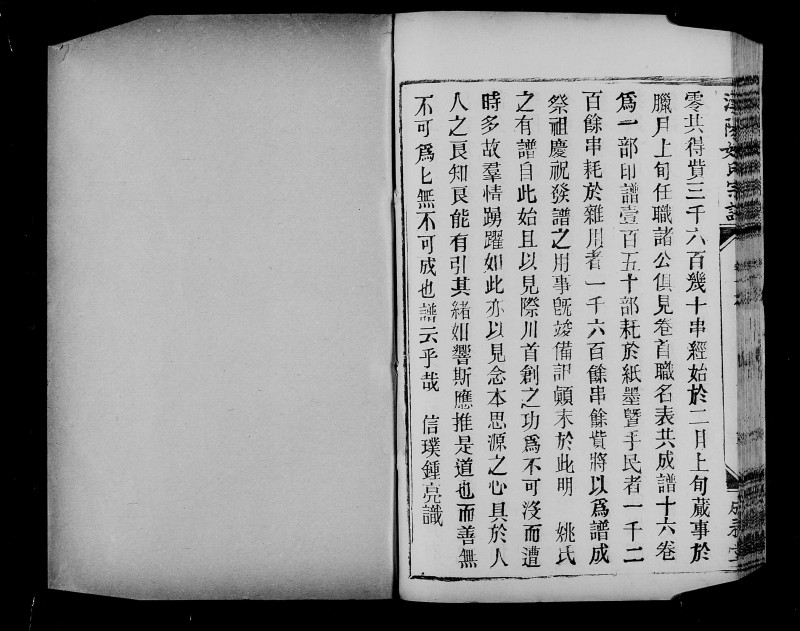 姚氏宗譜
零共得貲三千六百幾十串經始於二月上旬蕆事於
臘月上旬任職諸公俱見卷首職名表共成譜十六卷
爲一部印譜壹百五十部耗於紙墨曁手民者一千二
百餘串耗於雜用者一千六百餘串餘貲將以爲譜成
祭祖慶祝發譜之用事旣竣備記顚末於此明　姚氏
之有譜自此始且以見際川首創之功爲不可沒而遭
時多故羣情踴躍如此亦以見念本思源之心具於人
人之良知良能有引其緒如響斯應推是道也而善無
不可爲匕無不可成也譜云乎哉　信璞鍾亮識